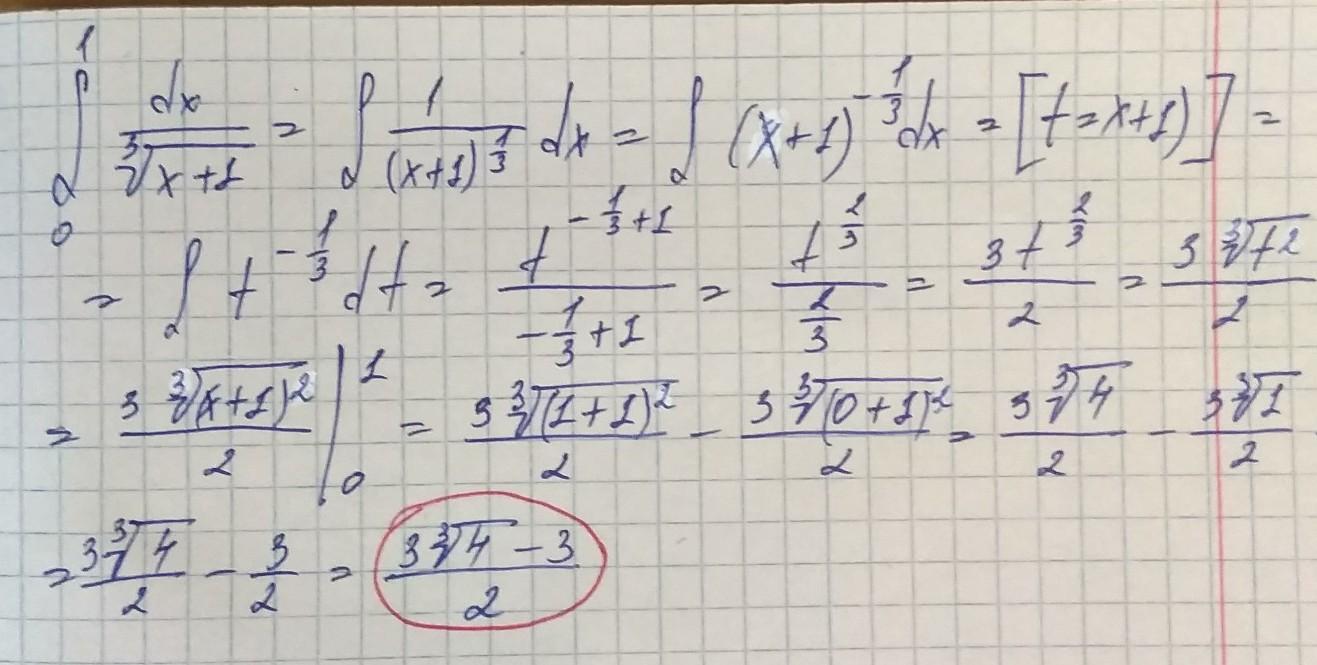 ∫₀¹ dx/∛(x+1) = ∫ 1/(x+1)^(1/3) dx = ∫ (x+1)^(-1/3) dx = [t=x+1)] =
= ∫ t^(-1/3) dt = t^(-1/3+1)/(-1/3+1) = t^(2/3)/(2/3) = 3t^(2/3)/2 = 3∛(t²)/2
= 3∛((x+1)²)/2 |₀¹ = 3∛((1+1)²)/2 - 3∛((0+1)²)/2 = 3∛4/2 - 3∛1/2
= 3∛4/2 - 3/2 = (3∛4 - 3)/2